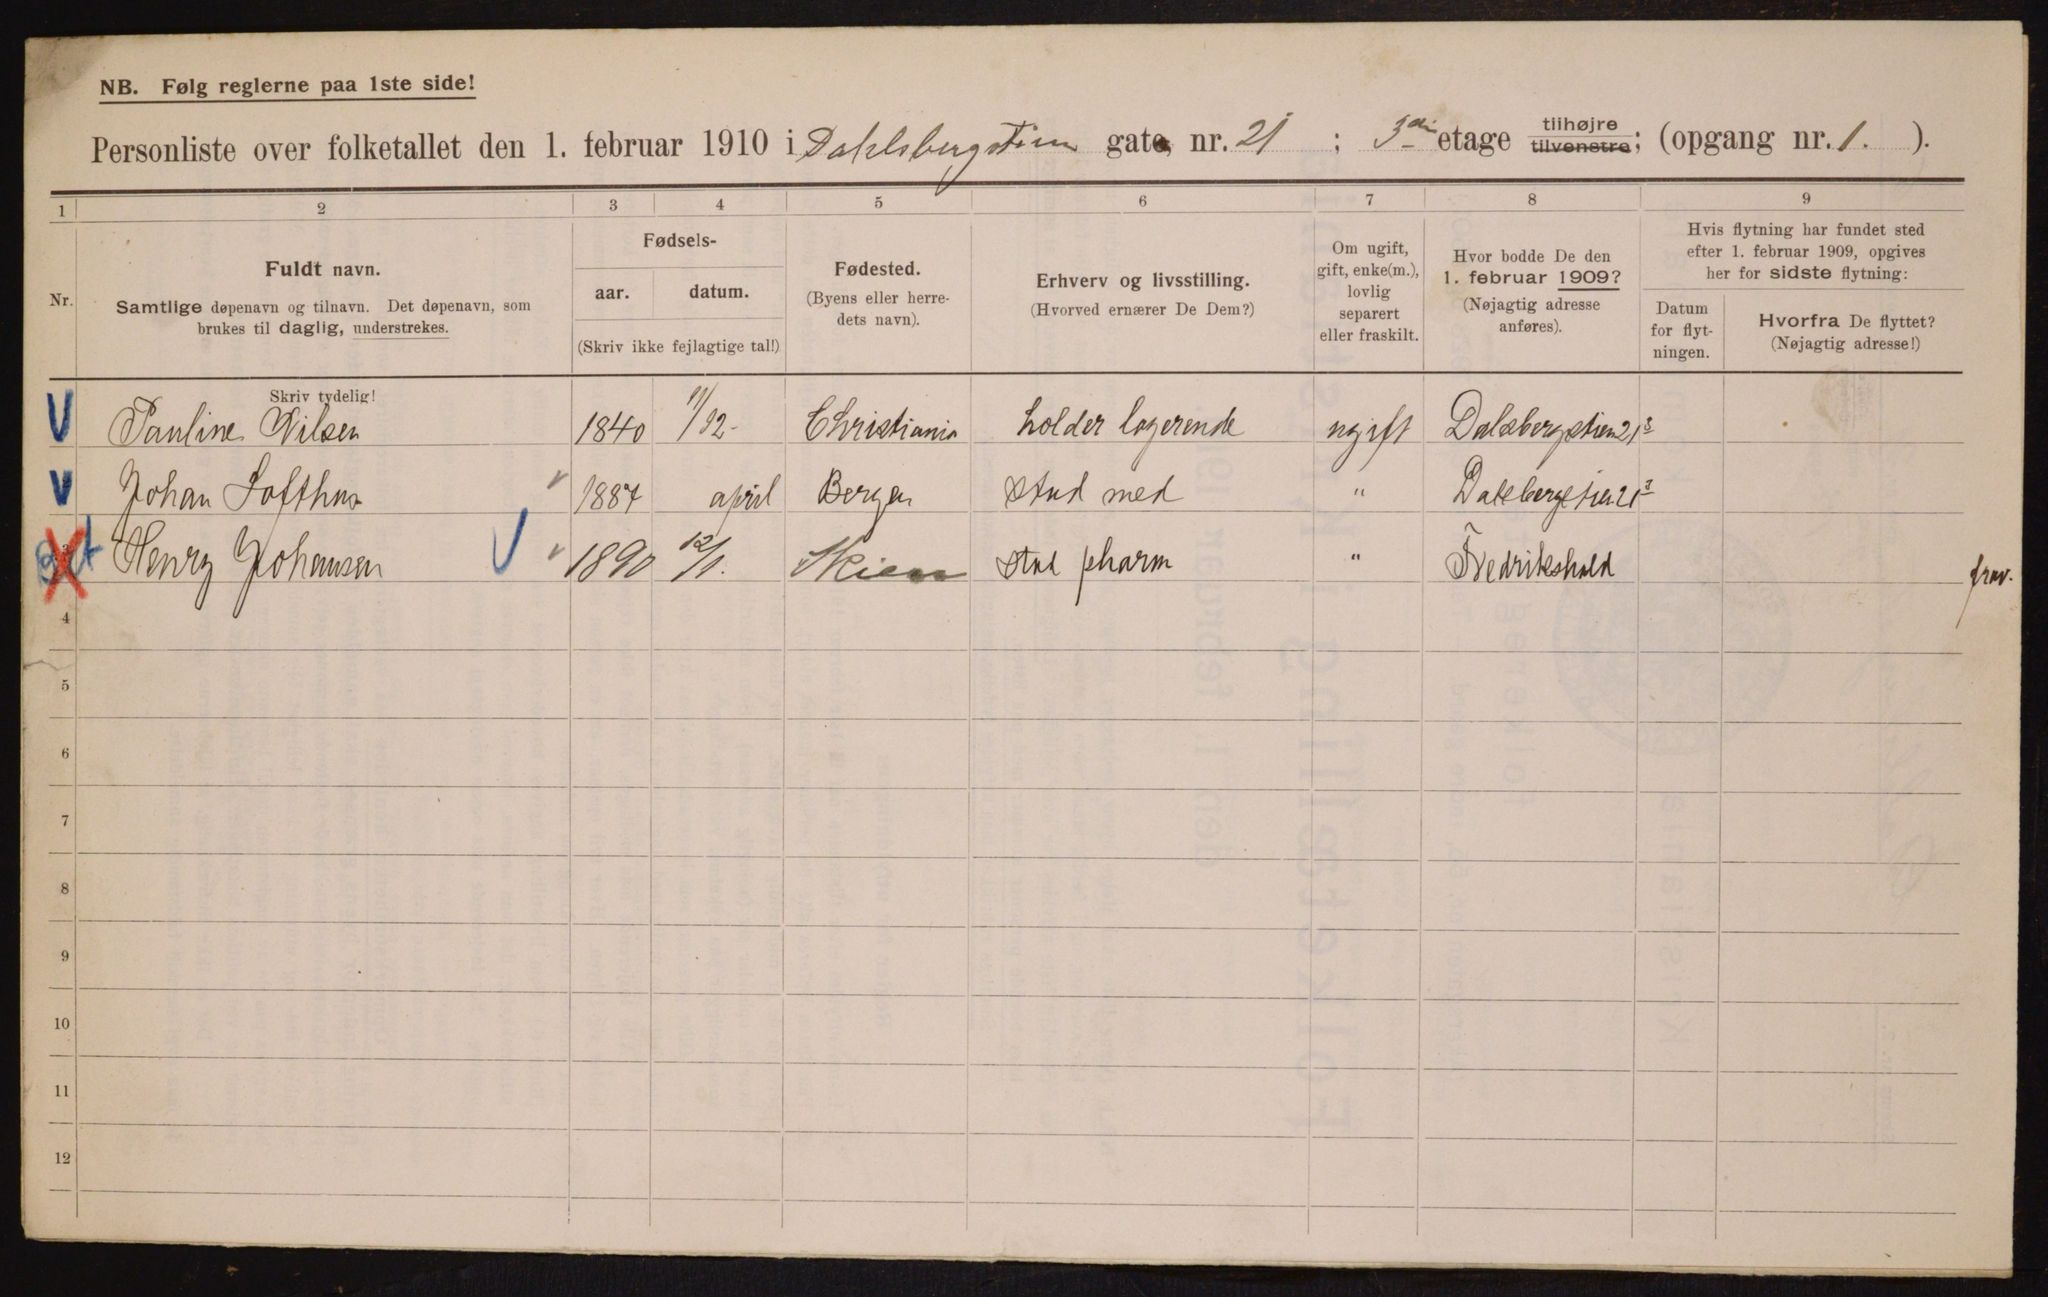 NB. Følg reglerne paa 1ste side!
Personliste over folketallet den 1. februar 1910 i Dahlsbergstien gate, nr. 21 ; 3die etage tilhøjre tilvenstre; (opgang nr. 1. ).
1 2 3 4 5 6 7 8 9
Nr.
Fuldt navn.
Samtlige døpenavn og tilnavn. Det døpenavn, som
brukes til daglig, understrekes.
Fødsels-
aar. datum.
(Skriv ikke fejlagtige tal!)
Fødested.
(Byens eller herre-
dets navn).
Erhverv og livsstilling.
(Hvorved ernærer De Dem?)
Om ugift,
gift, enke(m.),
lovlig
separert
eller fraskilt.
Hvor bodde De den
1. februar 1909?
(Nøjagtig adresse
anføres).
Hvis flytning har fundet sted
efter 1. februar 1909, opgives
her for sidste flytning:
Datum
for flyt-
ningen.
Hvorfra De flyttet?
(Nøjagtig adresse!)
Skriv tydelig!
Pauline Nilsen 1840 11/12- Christiania holder logerende ugift Dalsbergstien 21 3
Johan Lofthus 1887 april Bergen stud med " Dalsbergstien 21 3
Henry Johansen 1890 12/1. Skien stud pharm " Fredrikshald frav.
4
5
6
7
8
9
10
11
12